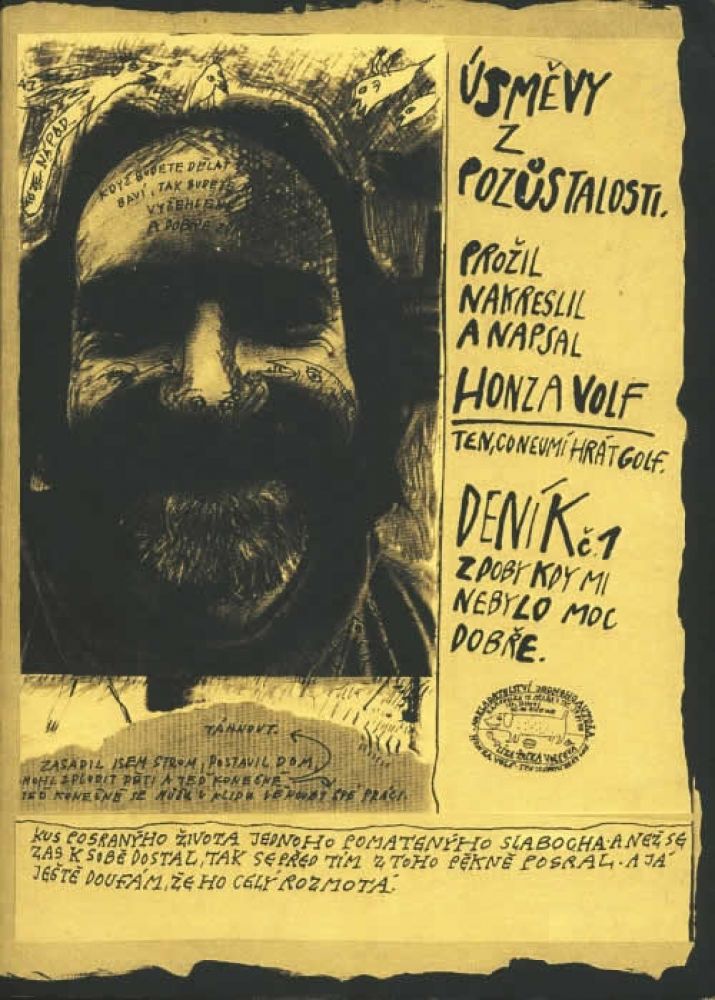 NÁPAD.
KDYŽ BUDETE DĚLAT
BAVÍ, TAK BUDETE
A DOBŘE
ÚSMĚVY
Z
POZŮSTALOSTI.
PROŽIL
NAKRESLIL
A NAPSAL
HONZA VOLF
TEN, CO NEUMÍ HRÁT GOLF.
DENÍK č.1
Z DOBY KDY MI
NEBYLO MOC
DOBŘE.
NAKLADATELSTVÍ JEDNOHO AUTORA
HONZA VOLF
TÁHNOUT.
ZASADIL JSEM STROM, POSTAVIL DOM,
MOHL ZPLODIT DĚTI A TEĎ KONEČNĚ
TEĎ KONEČNĚ SE MŮŽU V KLIDU VĚNOVAT SVÉ PRÁCI.
KUS POSRANÝHO ŽIVOTA JEDNOHO POMATENÝHO SLABOCHA. A NEŽ SE
ZAS K SOBĚ DOSTAL, TAK SE PŘED TÍM Z TOHO PĚKNĚ POSRAL. A JÁ
JEŠTĚ DOUFÁM, ŽE HO CELÝ ROZMOTÁ.